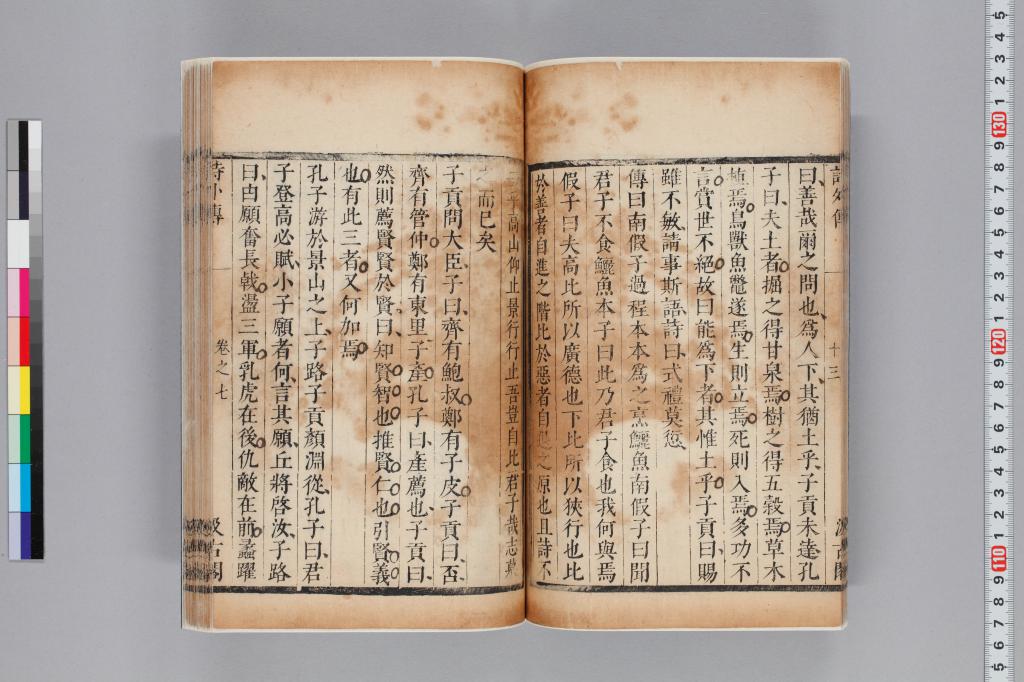 曰善哉爾之問也爲人下其猶土乎子貢未達孔
子曰夫土者掘之得甘泉焉樹之得五穀焉草木
植焉鳥獸魚鼈遂焉生則立焉死則入焉多功不
言賞世不絕故曰能爲下者其惟土乎子貢曰賜
雖不敏請事斯語詩曰式禮莫愆
傳曰南假子過程本本爲之烹鱺魚南假子曰聞
君子不食鱺魚本子曰此乃君子食也我何與焉
假子曰夫高比所以廣德也下比所以狹行也比
於善者自進之階比於惡者自退之原也且詩不
高山仰止景行行止吾豈自比君子哉志慕
而已矣
子貢問大臣子曰齊有鮑叔鄭有子皮子貢曰否
齊有管仲鄭有東里子產孔子曰產薦也子貢曰
然則薦賢賢於賢曰知賢智也推賢仁也引賢義
也有此三者又何加焉
孔子游於景山之上子路子貢顏淵從孔子曰君
子登高必賦小子願者何言其願丘將啓汝子路
曰由願奮長戟盪三軍乳虎在後仇敵在前蠡躍
詩外傳 卷之七 汲古閣
十三